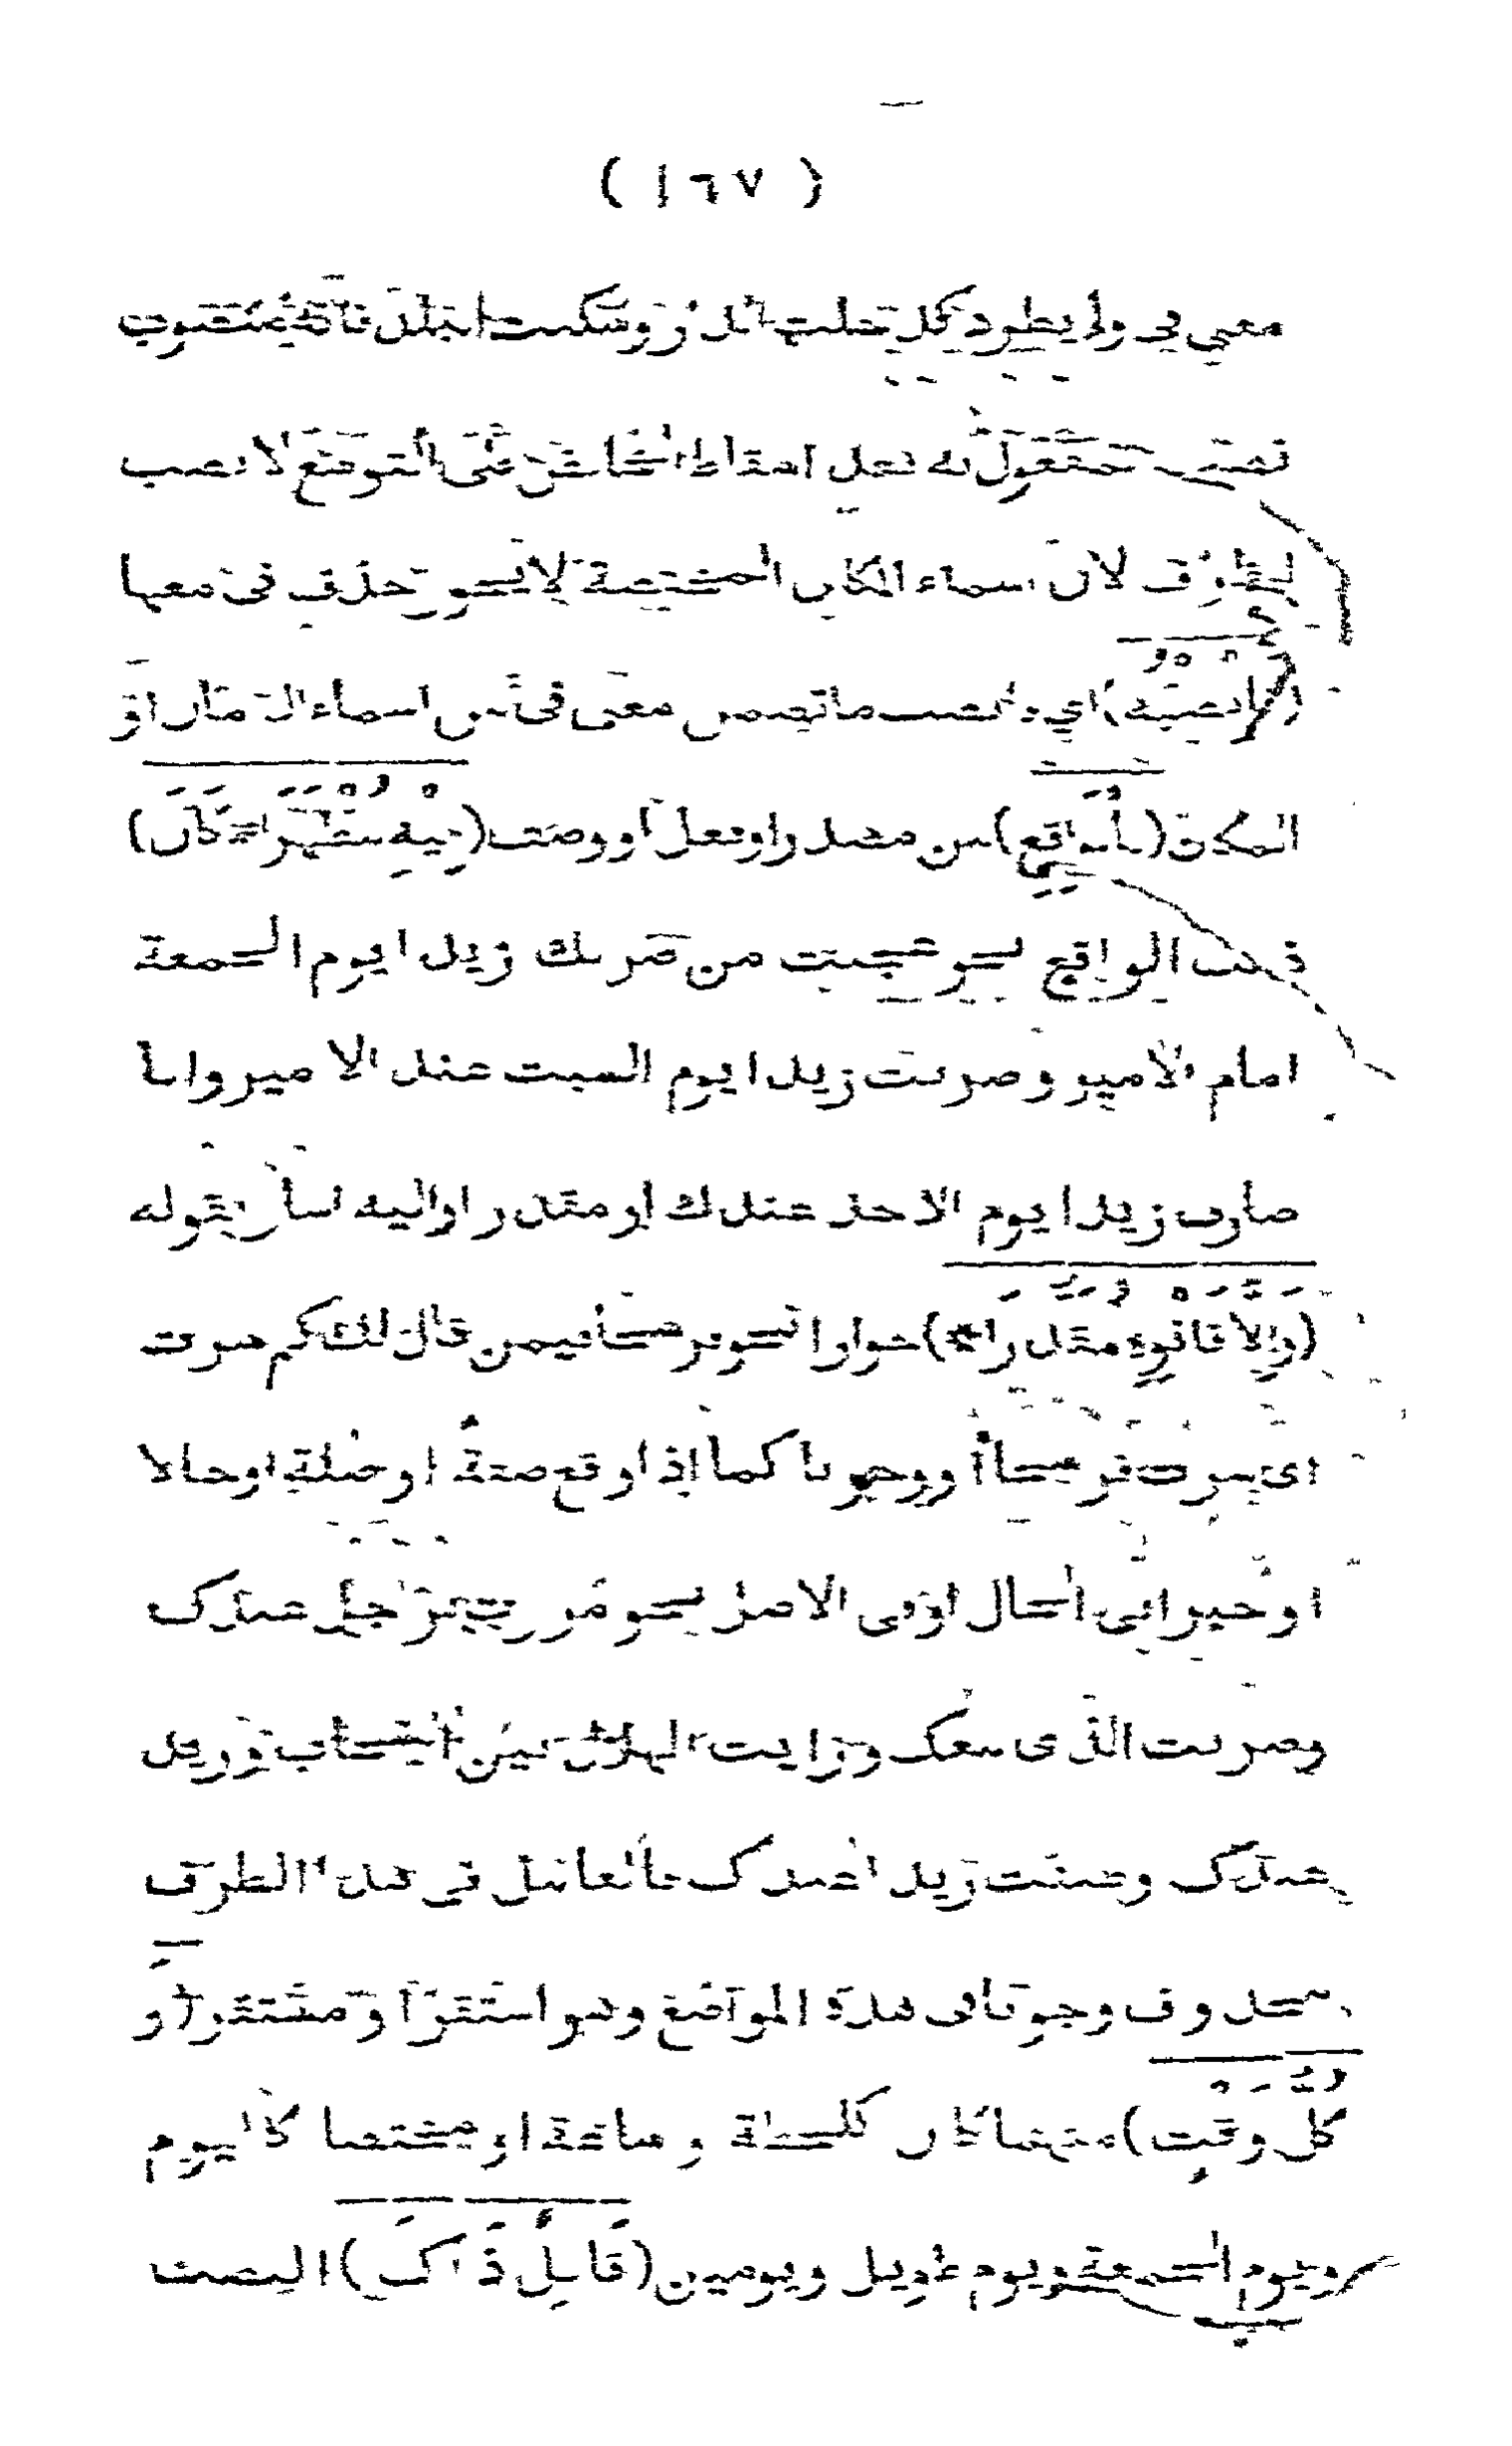 ( ١٦٧ )
معنى في ولم يطرد كل خلت الدار وسكنت البلد فانه منصوب
نصب المفعول به بعد اسقاط الخافض على التوسع لا نصب
الظرف لان اسماء المكان المختصة لا يجوز حذف في معها
(فانصبه) اي فانصب ما تضمن معنى في من اسماء الزمان او
المكان (بالواقع) من مصدر او فعل او وصف (فيه مظهرا كان)
ذلك الواقع نحو عجبت من ضربك زيدا يوم الجمعة
امام الامير وضربت زيدا يوم السبت عند الامير وانا
ضارب زيدا يوم الاحد عندك او مقدر او اليه اشار بقوله
(والا فانوه مقدرا*) جوازا نحو فرسخا لمن قال لك كم سرت
اى سرت فرسخا ووجوبا كما اذا وقع صفة او صلة او حالا
او خبرا في الحال او في الاصل نحو مررت برجل عندك
وضربت الذى معك ورايت الهلال بين السحاب وزيد
عندك وظننت زيدا عندك فالعامل في هذا الظرف
محذوف وجوبا فى هذه المواضع وهو استقر او مستقر (و
كل وقت) مبهما كان كلحظة وساعة او مختصا كاليوم
ويوم الجمعة ويوم طويل ويومين (قابل ذاك) النصب